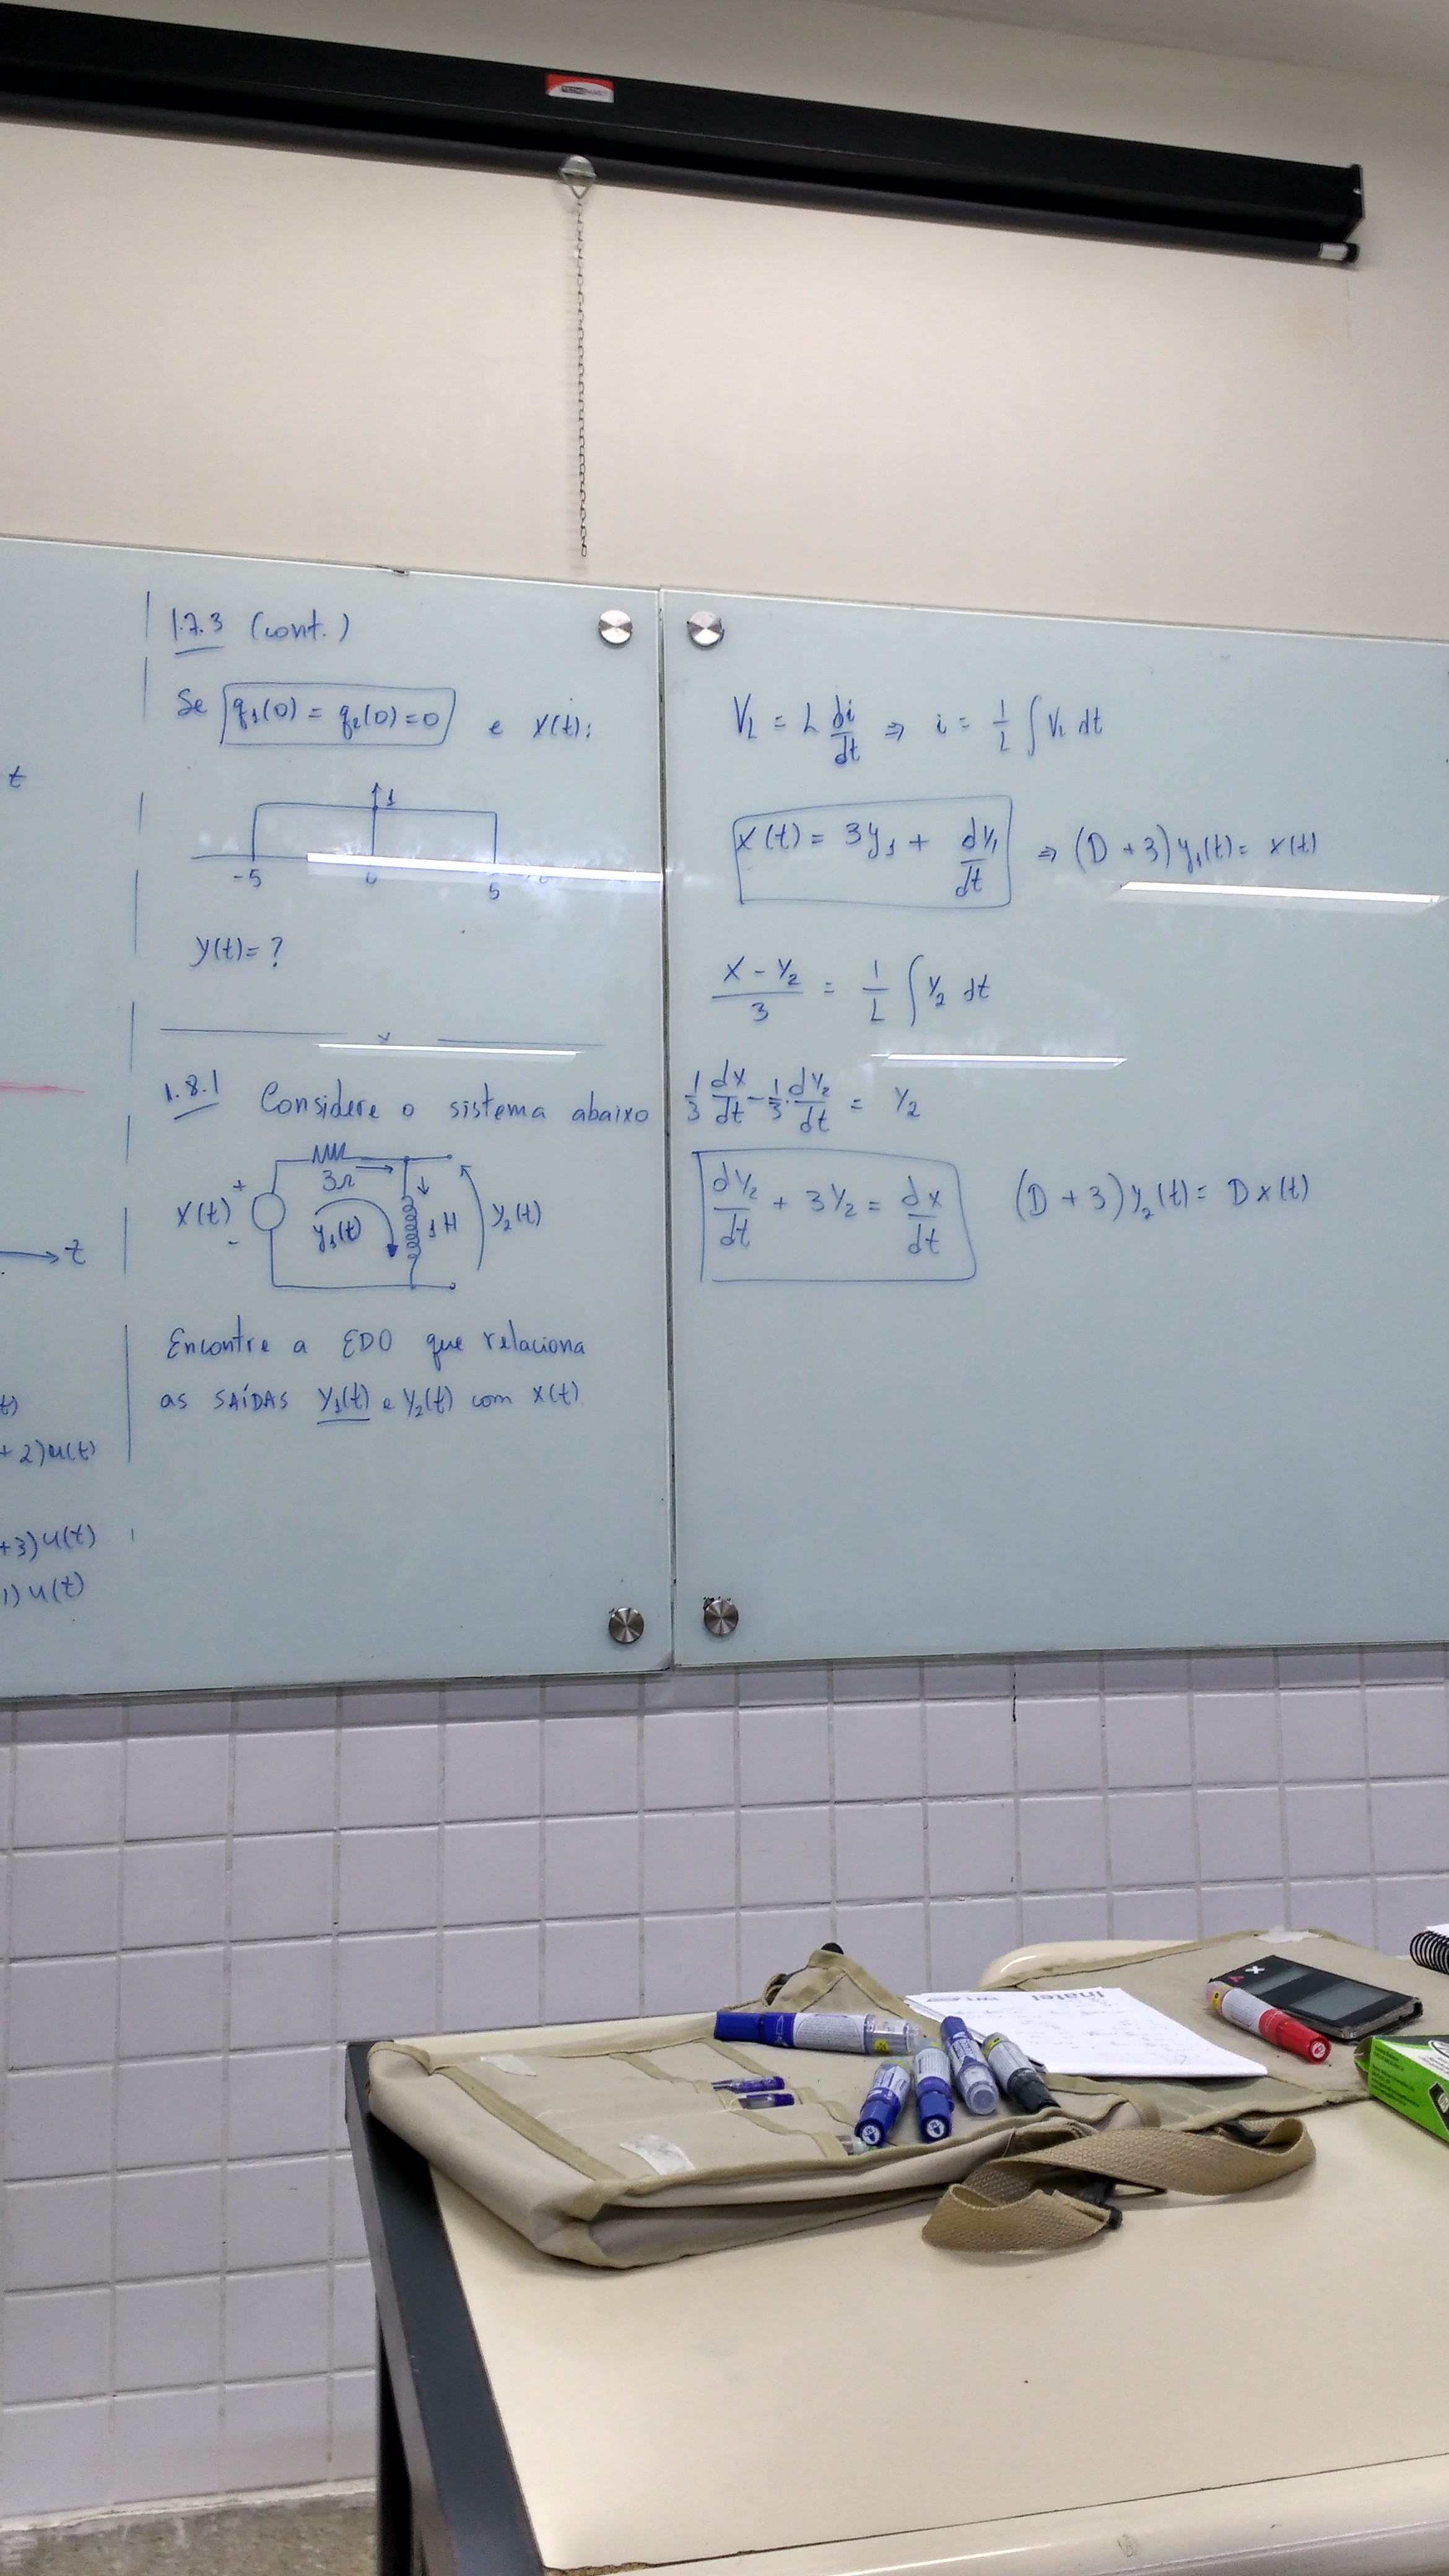 t
t
t)
+ 2)u(t)
+3)u(t)
1)u(t)
1.7.3 (cont.)
Se q₁(0) = q₂(0) = 0 e x(t):
1
-5 0 5
y(t) = ?
x
1.8.1 Considere o sistema abaixo
3Ω
x(t) + - y₁(t) 1H y₂(t)
Encontre a EDO que relaciona
as SAÍDAS y₁(t) e y₂(t) com x(t)
V_L = L di/dt ⇒ i = 1/L ∫ V_L dt
x(t) = 3y₁ + dy₁/dt ⇒ (D + 3) y₁(t) = x(t)
(x - y₂)/3 = 1/L ∫ y₂ dt
1/3 dx/dt - 1/3 · dy₂/dt = y₂
dy₂/dt + 3y₂ = dx/dt (D + 3) y₂(t) = D x(t)
inatel